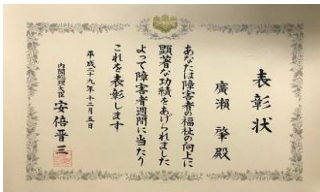 表彰状
廣瀬 肇 殿
あなたは障害者の福祉の向上に
顕著な功績をあげられました
よって障害者週間に当たり
これを表彰します
平成二十九年十二月五日
内閣総理大臣 安倍晋三